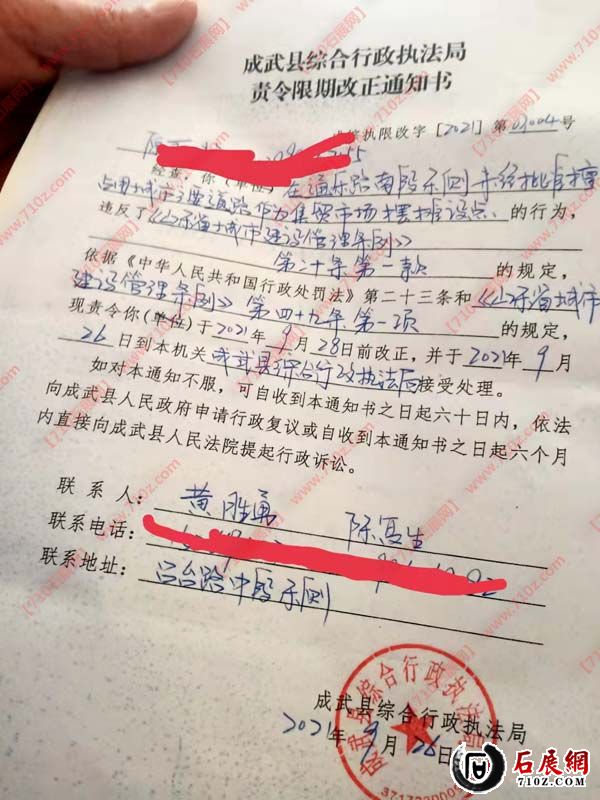 成武县综合行政执法局
责令限期改正通知书
综执限改字 [2021] 第01004号
经查,你(单位)在通乐路南段东侧未经批准擅
占用城市主要道路作为集贸市场摆摊设点、的行为,
违反了《山东省城市建设管理条例》
第二十条第一款 的规定,
依据《中华人民共和国行政处罚法》第二十三条和《山东省城市
建设管理条例》第四十九条第一项 的规定,
现责令你(单位)于2021年9月28日前改正,并于2021年9月
26日到本机关成武县综合行政执法局接受处理。
如对本通知不服,可自收到本通知书之日起六十日内,依法
向成武县人民政府申请行政复议或自收到本通知书之日起六个月
内直接向成武县人民法院提起行政诉讼。
联系人: 黄胜勇 陈富生
联系电话:
联系地址: 吕台路中段东侧
成武县综合行政执法局
2021年9月26日
石展網
710z.com